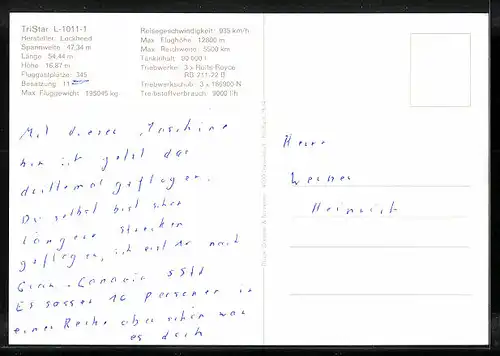 TriStar L-1011-1
Hersteller: Lockheed
Spannweite: 47,34 m
Länge: 54,44 m
Höhe: 16,87 m
Fluggastplätze: 345
Besatzung: 11
Max. Fluggewicht: 195045 kg
Reisegeschwindigkeit: 935 km/h
Max. Flughöhe: 12800 m
Max. Reichweite: 5500 km
Tankinhalt: 90 000 l
Triebwerke: 3 x Rolls-Royce
RB 211-22 B
Triebwerkschub: 3 x 186900 N
Treibstoffverbrauch: 9000 l/h
Mit dieser Maschine
bin ich jetzt das
drittemal geflogen.
Du selbst bist schon
längere Strecken
geflogen, ich erst so nach
Gran-Canaria
Es sassen 10 personen in
einer Reihe aber schön war
es doch
Herr
Werner
Heinrich